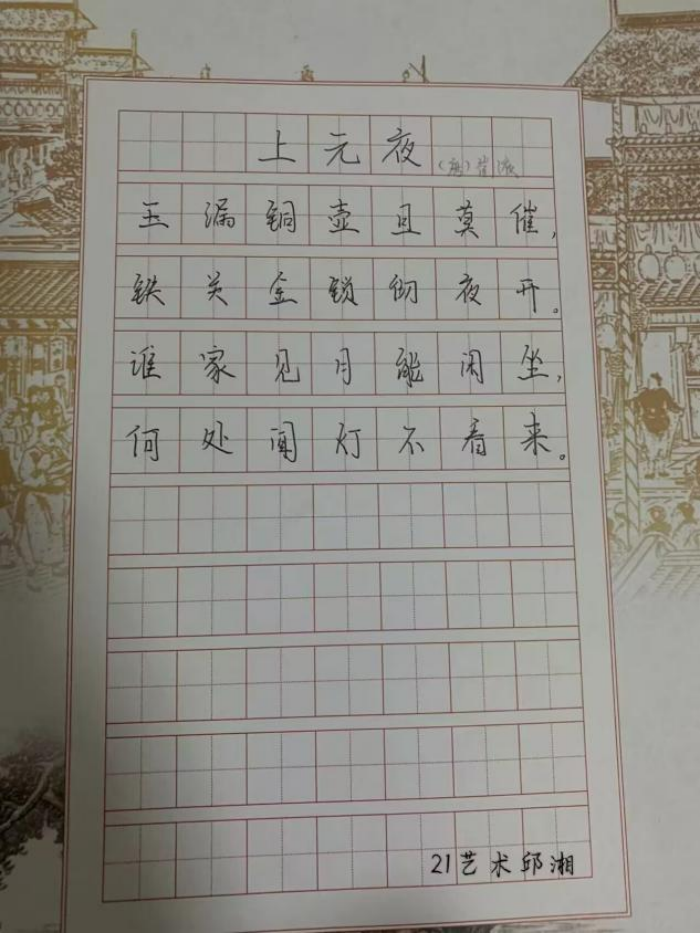 上元夜 (唐)崔液
玉漏铜壶且莫催,
铁关金锁彻夜开。
谁家见月能闲坐,
何处闻灯不看来。
21艺术邱湘